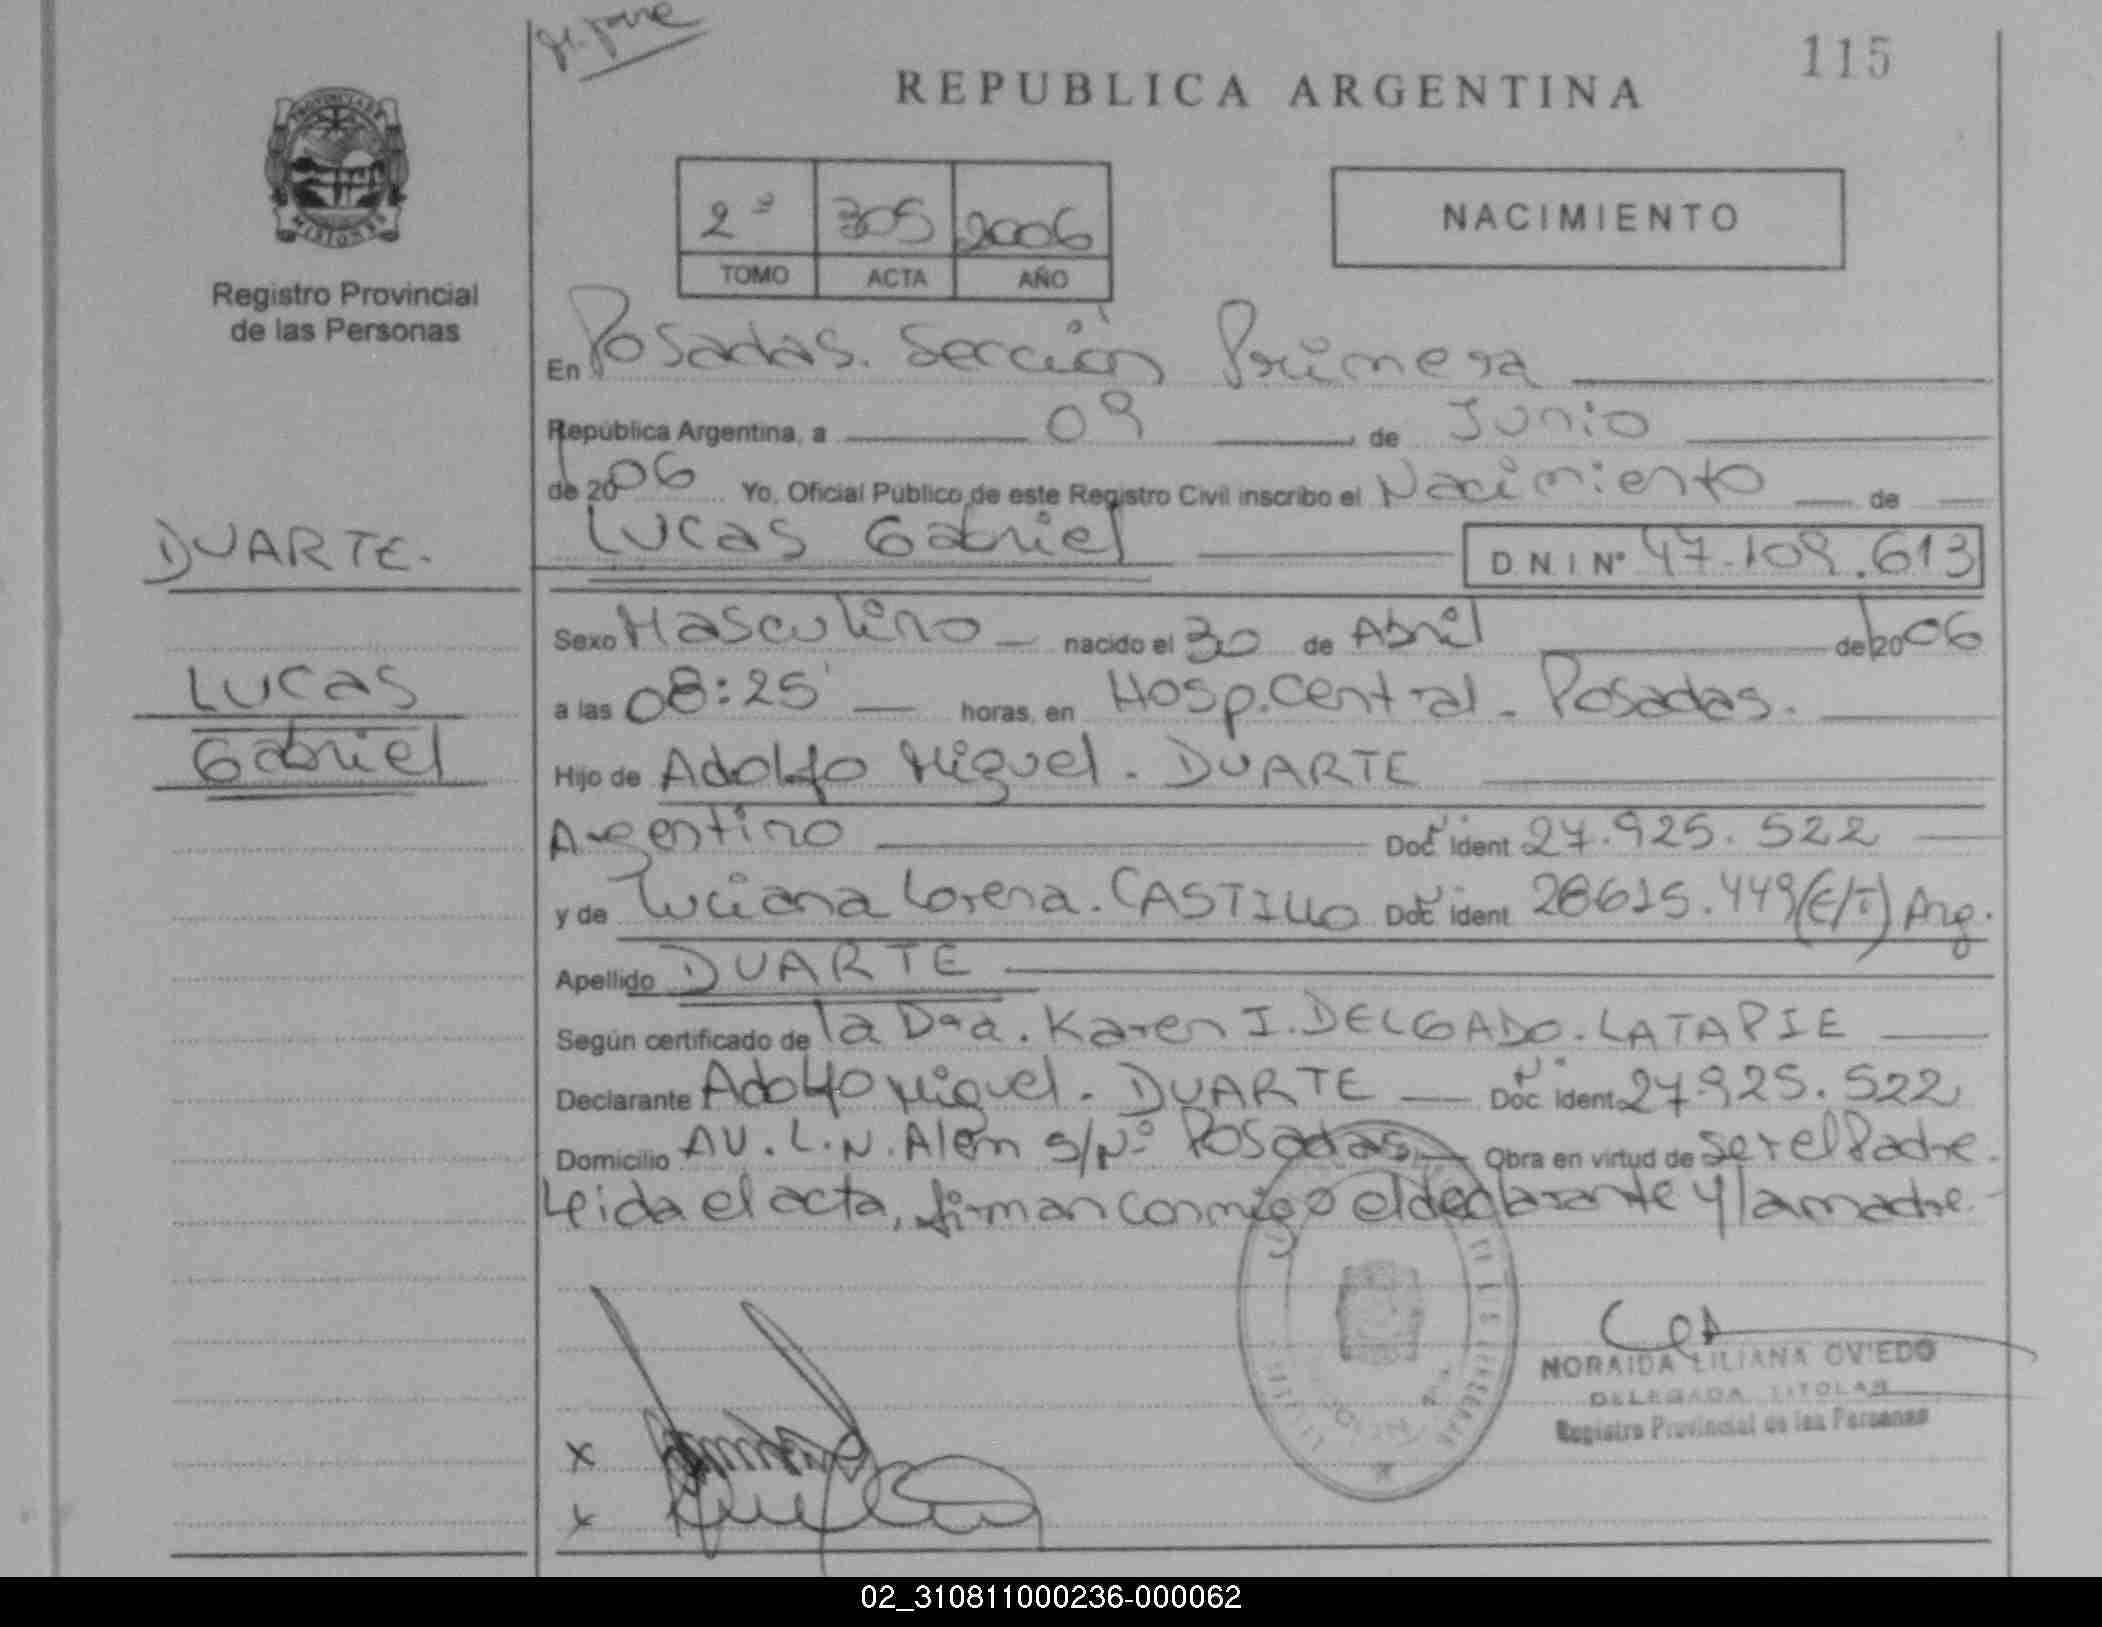 115
REPUBLICA ARGENTINA
PROVINCIA DE
MISIONES
Registro Provincial
de las Personas
NACIMIENTO
2º 305 2006
TOMO ACTA AÑO
En Posadas. Sección Primera
República Argentina, a 09 de Junio
de 2006 Yo, Oficial Público de este Registro Civil inscribo el Nacimiento de
Lucas Gabriel D.N.I Nº 47.109.613
DUARTE.
Lucas
Gabriel
Sexo Masculino nacido el 30 de Abril de 2006
a las 08:25' horas, en Hosp. Central - Posadas.
Hijo de Adolfo Miguel. DUARTE
Argentino Doc Ident 27.925.522
y de Luciana Lorena. CASTILLO Doc Ident 28615.449 (E/T) Arg.
Apellido DUARTE
Según certificado de la Dra. Karen I. DELGADO. LATAPIE
Declarante Adolfo Miguel. DUARTE Doc. Ident 27.925.522
Domicilio AV. L.N. Alem S/Nº Posadas Obra en virtud de ser el Padre.
Leida el acta, firman conmigo el declarante y la madre.
NORAIDA LILIANA OVIEDO
DELEGADA TITULAR
Registro Provincial de las Personas
x
x
02_310811000236-000062